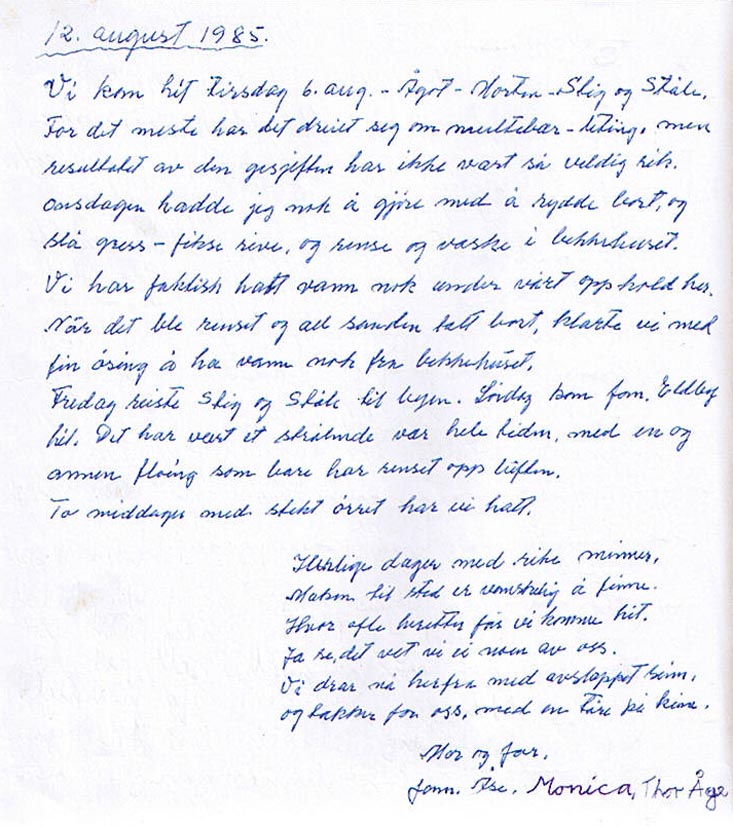 12. august 1985.
Vi kom hit Tirsdag 6. aug. - Ågot - Morten - Stig og Ståle.
For det meste har det dreiet seg om multebær - leting, men
resultatet av den gesjeften har ikke vært så veldig rik.
Onsdagen hadde jeg nok å gjøre med å rydde bort, og
slå gress - fikse rive, og rense og vaske i bekkehuset.
Vi har faktisk hatt vann nok under vårt opphold her.
Når det ble renset og all sanden tatt bort, klarte vi med
fin øsing å ha vann nok fra bekkehuset.
Fredag reiste Stig og Ståle til byen. Lørdag kom fam. Eldby
hit. Det har vært et strålende vær hele tiden, med en og
annen floing som bare har renset opp luften.
To middager med stekt ørret har vi hatt.
Herlige dager med rike minner,
Maken til sted er vanskelig å finne.
Hvor ofte heretter får vi komme hit.
Ja se, det vet vi ei noen av oss.
Vi drar nå herfra med avslappet sinn,
og takker for oss, med en tåre på kinn.
Mor og far.
Jonn. Åse. Monica, Thor Åge